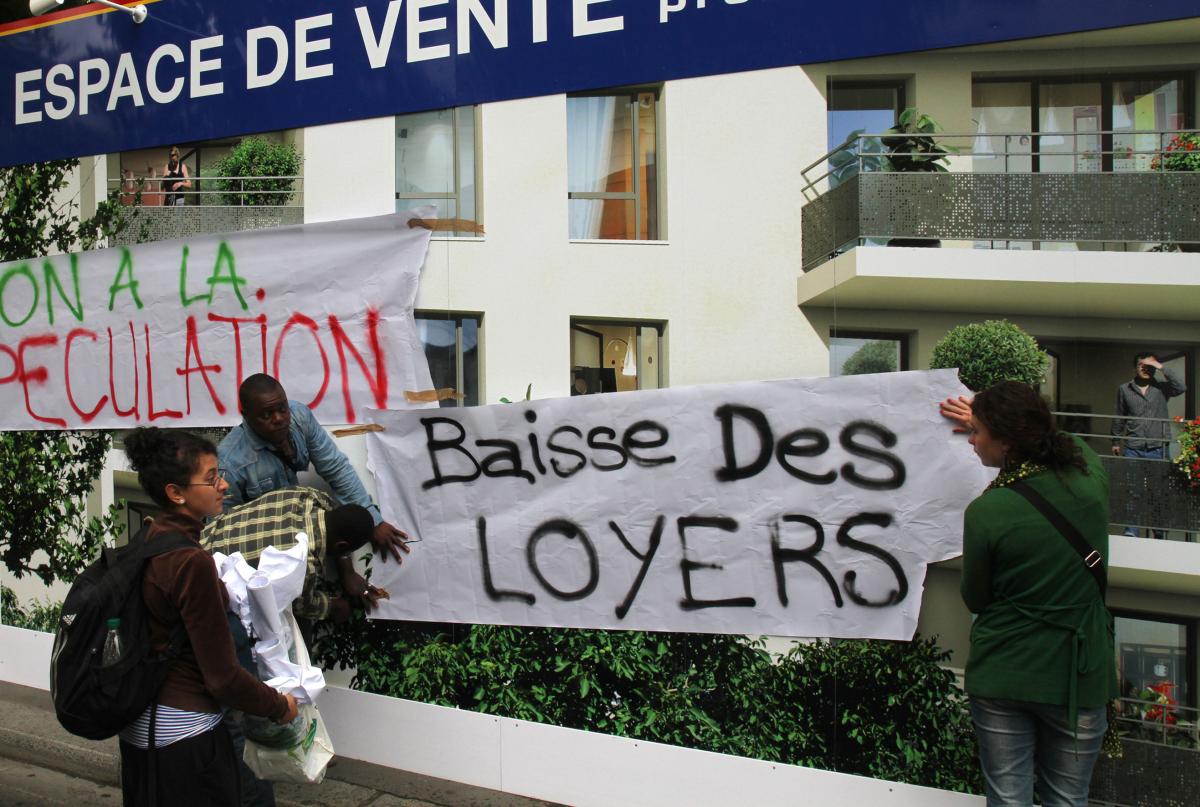 ESPACE DE VENTE
ON A LA
PECULATION
Baisse Des
LOYERS